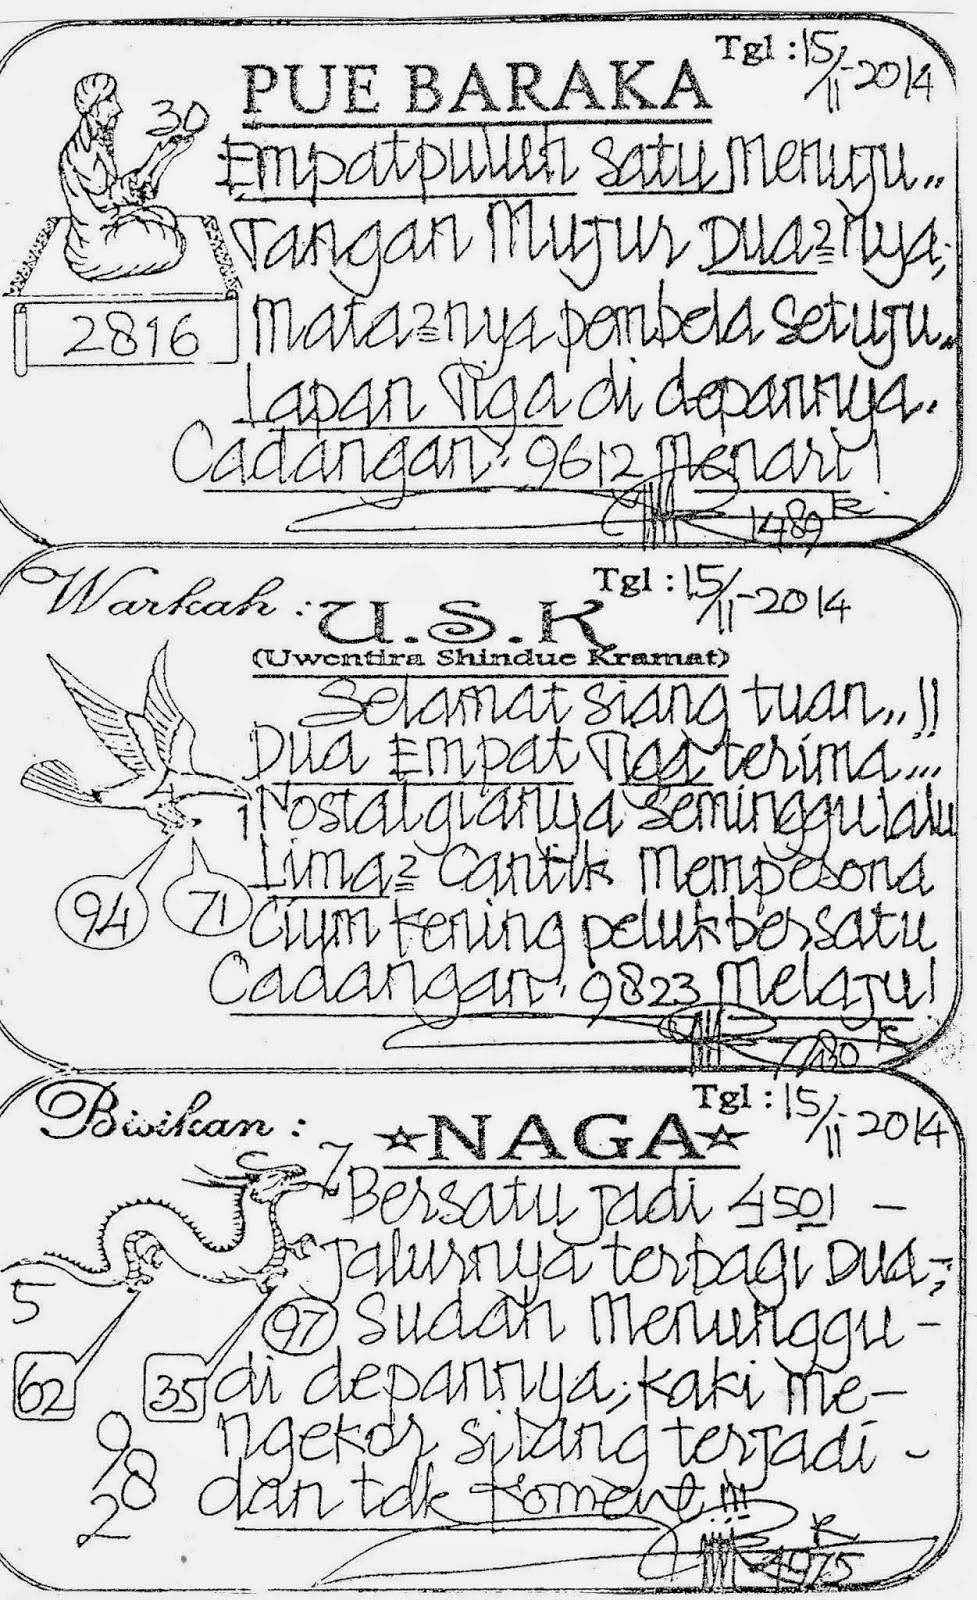 Tgl : 15/11-2014
PUE BARAKA
30
Empatpuluh satu Menuju..
Tangan Mujur Dua2nya;
2816
Mata2nya pembela setuju..
Lapan Tiga di depannya.
Cadangan : 9612 Menari!
1489 R
Tgl : 15/11-2014
Warkah : U.S.K
(Uwentira Shindue Kramat)
Selamat siang tuan..!!
Dua Empat Tiga terima...
1 Nostalgianya seminggu lalu
Lima2 Cantik Mempesona
94 71
Cium kening peluk bersatu
Cadangan : 9823 Melaju!
R
Tgl : 15/11-2014
Bisikan : ☆NAGA☆
7
Bersatu jadi 4501 -
Jalurnya terbagi Dua-;
5
97 Sudah Menunggu -
62 35
di depannya, kaki me-
ngekor silang terjadi -
98
2
dan tdk koment!!!
R
4975